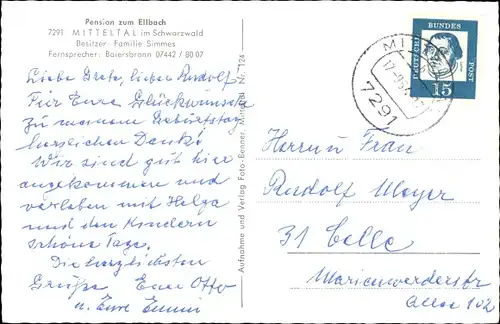 Pension zum Ellbach
7291 MITTELTAL im Schwarzwald
Besitzer: Familie Simmes
Fernsprecher: Baiersbronn 07442 / 80 07
Liebe Grete, lieber Rudolf!
Für Eure Glückwünsche
zu meinem Geburtstag
herzlichen Dank!
Wir sind gut hier
angekommen und
verleben mit Helga
und den Kindern
schöne Tage.
Die herzlichsten
Grüße Euer Otto
u. Eure Emmi
Aufnahme und Verlag Foto-Benner, Mitteltal Nr. 124
DEUTSCHE
BUNDES
POST
15
7291
Herrn u Frau
Rudolf Meyer
31 Celle
Marienwerderstr
Allee 102